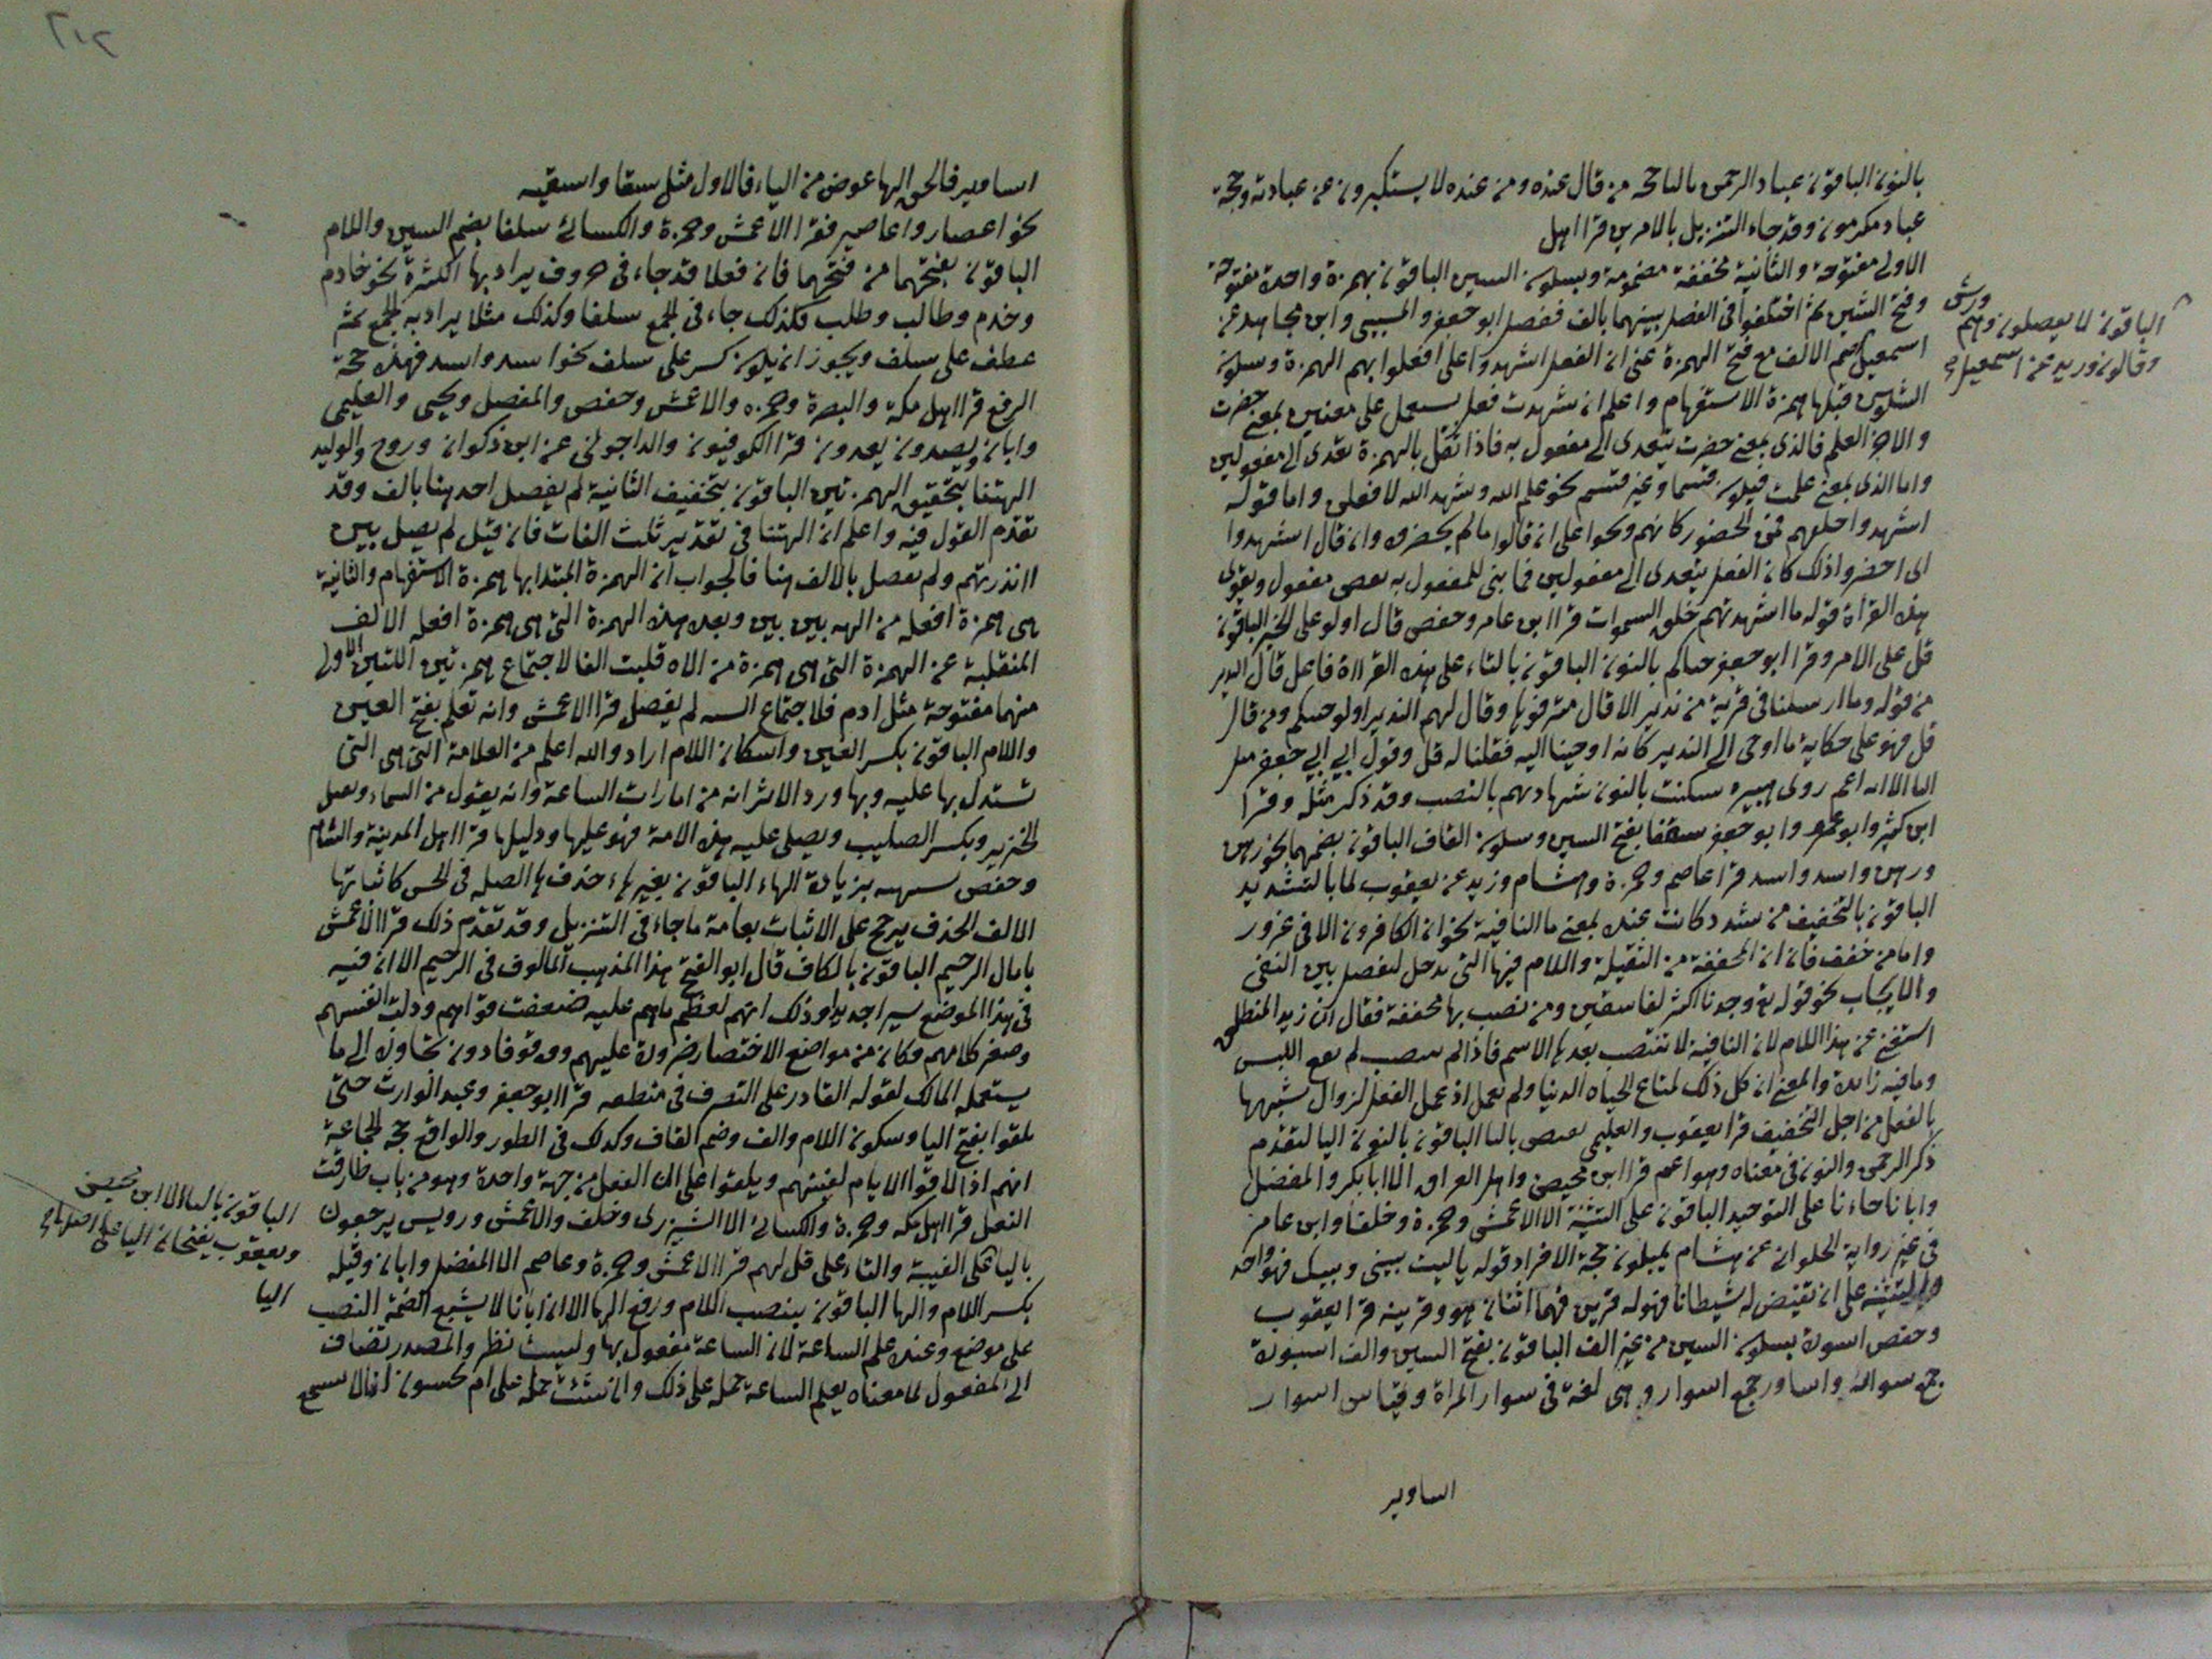 بالنون الباقون عباد الرحمن بالبا من قال عنده ومن عنده لا يستكبرون عن عبادته وحجة
عباد مكرمون وقد جاء التنزيل بالامرين قرا اهل
الاولى مفتوحة والثانية مخففة مضمومة وبسكون السين الباقون بهمزة واحدة مفتوحة
وفتح الشين ثم اختلفوا في الفصل بينهما بالف ففصل ابو جعفر والمسيبي وابن مجاهد عن
اسمعيل ضم الالف مع فتح الهمزة عنى ان الفعل اشهدوا على افعلوا بهم الهمزة وسكون
الشين قبلها همزة الاستفهام واعلم ان شهدت فعل يستعمل على معنيين بمعنى حضرت
والاخر العلم فالذي بمعنى حضرت يتعدى الى مفعول به فاذا نقل بالهمزة تعدى الى مفعولين
واما الذي بمعنى علمت فيكون قسما وغير قسم نحو علم الله وشهد الله لافعلن واما قوله
اشهدوا خلقهم فمن الحضور كانهم وبخوا على ان قالوا ما لم يحضروه وان قال اشهدوا
اى احضروا ذلك كان الفعل يتعدى الى مفعولين فما بنى للمفعول به نقص مفعول ويقوى
هذه القراة قوله ما اشهدتهم خلق السموات قرا ابن عامر وحفص قال اولو على الخبر الباقون
قل على الامر وقرا ابو جعفر جيناكم بالنون الباقون بالتاء على هذه القراة فاعل قال النذير
من قوله وما ارسلنا في قرية من نذير الا قال مترفوها وقال لهم النذير اولو جيتكم ومن قال
قل فهو على حكاية ما اوحى الى النذير كانه اوحينا اليه فقلنا له قل وقول ابي جعفر مثل
الا انه اعم روى هبيره سكتب بالنون شهادتهم بالنصب وقد ذكر مثله وقرا
ابن كثير وابو عمرو وابو جعفر سقفا بفتح السين وسكون القاف الباقون بضمهما نحو رهن
ورهن واسد واسد قرا عاصم وحمزة وهشام وزيد عن يعقوب لما بالتشديد
الباقون بالتخفيف من شدد كانت عنده بمعنى ما النافية نحو ان الكافرون الا في غرور
واما من خفف فان ان المخففة من الثقيلة واللام فيها التي تدخل لتفصل بين النفى
والايجاب نحو قوله وجدنا اكثرهم لفاسقين ومن نصب بها مخففة فقال ان زيدا لمنطلق
استغنى عن هذا اللام لان النافية لا تنتصب بعدها الاسم فاذا لم ينصب لم يقع اللبس
وما فيه زايدة والمعنى ان كل ذلك لمتاع الحياه الدنيا ولم تعمل اذ عمل الفعل لزوال شبهها
بالفعل من اجل التخفيف قرا يعقوب والعليمي يقيض بالبا الباقون بالنون اليا لتقدم
ذكر الرحمن والنون في معناه وهو اعم قرا ابن محيصن واهل العراق الا ابا بكر والمفضل
وابانا جاءنا على التوحيد الباقون على التثنية الا الاعمش وحمزة وخلفا وابن عامر
في غير رواية الحلواني عن هشام يميلون حجة الافراد قوله ياليت بينى وبينك فهو واحد
والتثنية على ان نقيض له شيطانا فهو له قرين فهما اثنان هو وقرينه قرا يعقوب
وحفص اسورة بسكون السين من غير الف الباقون بفتح السين والف اسورة
جمع سوار واساور جمع اسوار وهى لغة في سوار المراة وقياس اسوار
اساوير
الباقون لا يفصلون وهم ورش
وقالون وزيد عن اسمعيل
٢١٢
اساوير فالحق الها عوض من الياء فالاول مثل سقا واسقيه
نحو اعصار واعاصير فقرا الاعمش وحمزة والكسائي سلفا بضم السين واللام
الباقون بفتحهما من فتحهما فان فعلا قد جاء في حروف يراد بها الكثرة نحو خادم
وخدم وطالب وطلب فكذلك جاء في الجمع سلفا وكذلك مثلا يراد به الجمع ثم
عطف على سلف ويجوز ان يكون كسر على سلف نحو اسد واسد فهذه حجة
الرفع قرا اهل مكة والبصرة وحمزه والاعمش وحفص والمفضل ويحيى والعليمي
وابان يصدون يعدون قرا الكوفيون والداجوني عن ابن ذكوان وروح والوليد
الهتنا بتحقيق الهمزتين الباقون بتخفيف الثانية لم يفصل احد هنا بالف وقد
تقدم القول فيه واعلم ان الهتنا في تقدير ثلث الفات فان قيل لم يصل بين
اانذرتهم ولم يفصل بالالف هنا فالجواب ان الهمزة المبتدا بها همزة الاستفهام والثانية
هى همزة افعله من الهه بين بين وبعد هذه الهمزة التي هى همزة افعله الالف
المنقلبة عن الهمزة التي هى همزة من الاه قلبت الفا لاجتماع همزتين اللتين الاولى
منهما مفتوحة مثل ادم فلاجتماع لم يفصل قرا الاعمش وانه لعلم بفتح العين
واللام الباقون بكسر العين واسكان اللام اراد والله اعلم من العلامة التي هى التي
تستدل بها عليه وبها ورد الاثر انه من امارات الساعة وانه ينزل من السماء ويقتل
الخنزير ويكسر الصليب ويصلى عليه هذه الامة فهو عليها ودليلها قرا اهل المدينة والشام
وحفص تشتهيه بزيادة الهاء الباقون بغير هاء حذف ها الصله في الحسن كاثباتها
الا الف الحذف يرجح على الاثبات بعامة ما جاء في التنزيل وقد تقدم ذلك قرا الاعمش
يا مال الرخيم الباقون بالكاف قال ابو الفتح هذا المذهب المالوف في الترخيم الا ان فيه
في هذا الموضع سرا جديدا وذلك انهم لعظم ما هم عليه ضعفت قواهم وذلت انفسهم
وصغر كلامهم فكان من مواضع الاختصار ضرورة عليهم ووقوفا دون تجاوزه الى ما
يستعمله المالك لقوله القادر على التصرف في منطقه قرا ابو جعفر وعبد الوارث حتى
يلقوا بفتح اليا وسكون اللام والف وضم القاف وكذلك في الطور والواقع حجة الجماعة
انهم اذا لاقوا الايام لقيتهم ويلقوا على ان الفعل من جهة واحدة وهو من باب طارقت
النعل قرا اهل مكه وحمزة والكسائي الا الشيزرى وخلف والاعمش ورويس يرجعون
باليا على الغيبة والتاء على قل لهم قرا الاعمش وحمزة وعاصم الا المفضل وابان وقيله
بكسر اللام والها الباقون بنصب اللام ورفع الها الا ان ابانا لا يشبع الضمة النصب
على موضع وعنده علم الساعة لان الساعة مفعول بها وليست نظر والمصدر تضاف
الى المفعول لما معناه يعلم الساعة حمل على ذلك وان شئت حمله على ام يحسبون انا لا نسمع
الباقون بالتا الا ابن محيصن
ويعقوب يفتحان اليا على اصلهما
اليا